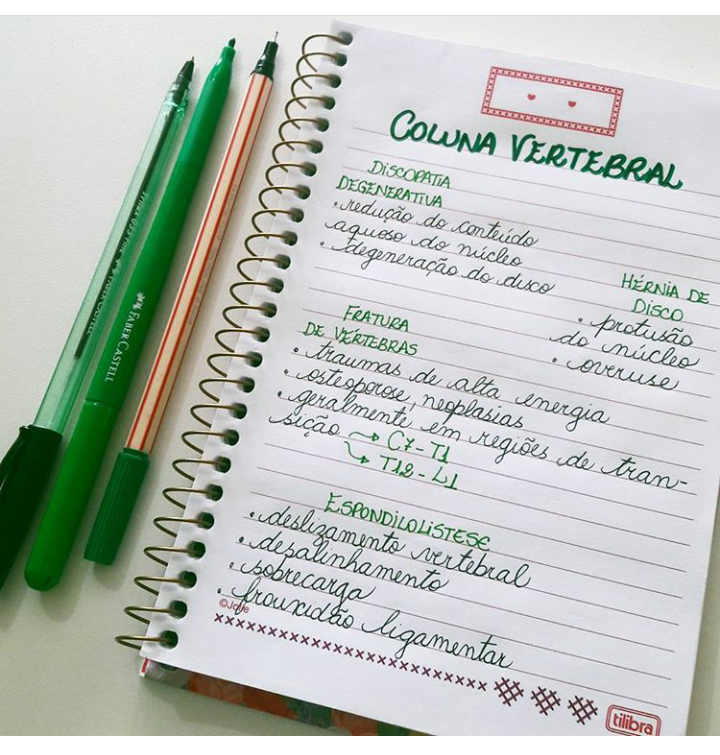 COLUNA VERTEBRAL
DISCOPATIA
DEGENERATIVA
• redução do conteúdo
aquoso do núcleo
• degeneração do disco
HÉRNIA DE
DISCO
• protusão
do núcleo
• overuse
FRATURA
DE VÉRTEBRAS
• traumas de alta energia
• osteoporose, neoplasias
• geralmente em regiões de tran-
sição → C7-T1
↳ T12-L1
ESPONDILOLISTESE
• deslizamento vertebral
• desalinhamento
• sobrecarga
• frouxidão ligamentar
©Jolie
tilibra
FABER CASTELL